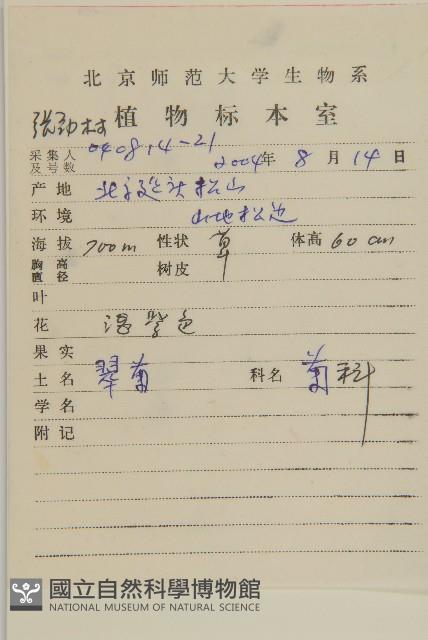 北京师范大学生物系
张劲林 植物标本室
采集人及号数 040814-21 2004年 8 月 14 日
产地 北京延庆松山
环境 山地松边
海拔 700m 性状 草 体高 60 cm
胸高直径 树皮
叶
花 湛紫色
果实
土名 翠菊 科名 菊科
学名
附记
國立自然科學博物館
NATIONAL MUSEUM OF NATURAL SCIENCE